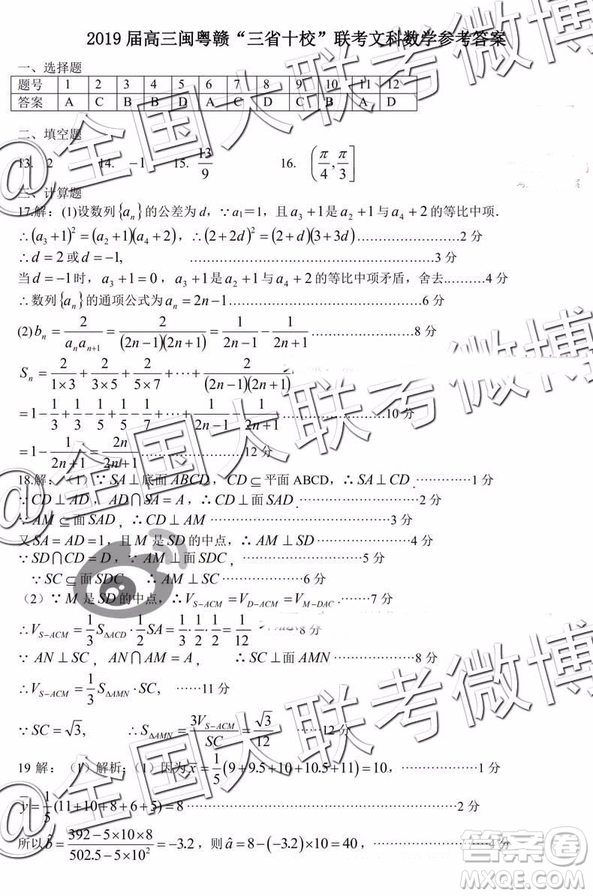 2019届高三闽粤赣“三省十校”联考文科数学参考答案
一、选择题
题号 1 2 3 4 5 6 7 8 9 10 11 12
答案 A C B B D A C D B C A D
二、填空题
13. 2 14. -1 15. 13/9 16. (π/4, π/3]
三、计算题
17.解：(1)设数列{a_n}的公差为d，∵a₁=1，且a₃+1是a₁+1与a₄+2的等比中项．
∴(a₃+1)²=(a₁+1)(a₄+2)，∴(2+2d)²=(2+d)(3+3d)……………………2分
∴d=2或d=-1,……………………3分
当d=-1时，a₃+1=0，a₃+1是a₁+1与a₄+2的等比中项矛盾，舍去..........4分
∴数列{a_n}的通项公式为a_n=2n-1……………………6分
(2)b_n=2/(a_n a_{n+1})=2/((2n-1)(2n+1))=1/(2n-1)-1/(2n+1)……………………8分
S_n=2/(1×3)+2/(3×5)+2/(5×7)+…+2/((2n-1)(2n+1))
=1-1/3+1/3-1/5+1/5-1/7+…+1/(2n-1)-1/(2n+1)……10分
=1-1/(2n+1)=2n/(2n+1)……………………12分
18.解：（1）∵SA⊥底面ABCD，CD⊆平面ABCD，∴SA⊥CD………1分
∵CD⊥AD，AD∩SA=A，∴CD⊥面SAD.……………2分
∵AM⊆面SAD，∴CD⊥AM……………………3分
又SA=AD=1，且M是SD的中点，∴AM⊥SD……………4分
∵SD∩CD=D，∴AM⊥面SDC……………………5分
∵SC⊆面SDC ∴SC⊥AM……………………6分
（2）∵M是SD的中点，∴V_{S-ACM}=V_{D-ACM}=V_{M-DAC}.………7分
∴V_{S-ACM}=1/3 S_{ΔACD}·1/2 SA=1/3·1/2·1/2=1/12……8分
∵AN⊥SC，AM⊥SC，∴SC⊥面AMN……………10分
∴V_{S-ACM}=1/3 S_{ΔAMN}·SC，……11分
∵SC=√3, ∴S_{ΔAMN}=3V_{S-ACM}/SC=√3/12 ……12分
19解：（1）解析：(1)因为x̄=1/5(9+9.5+10+10.5+11)=10，……………1分
ȳ=1/5(11+10+8+6+5)=8……………………2分
所以b̂=(392-5×10×8)/(502.5-5×10²)=-3.2，则â=8-(-3.2)×10=40，……………4分
@全国大联考微博
@全国大联考微博
@全国大联考微博
答案圈